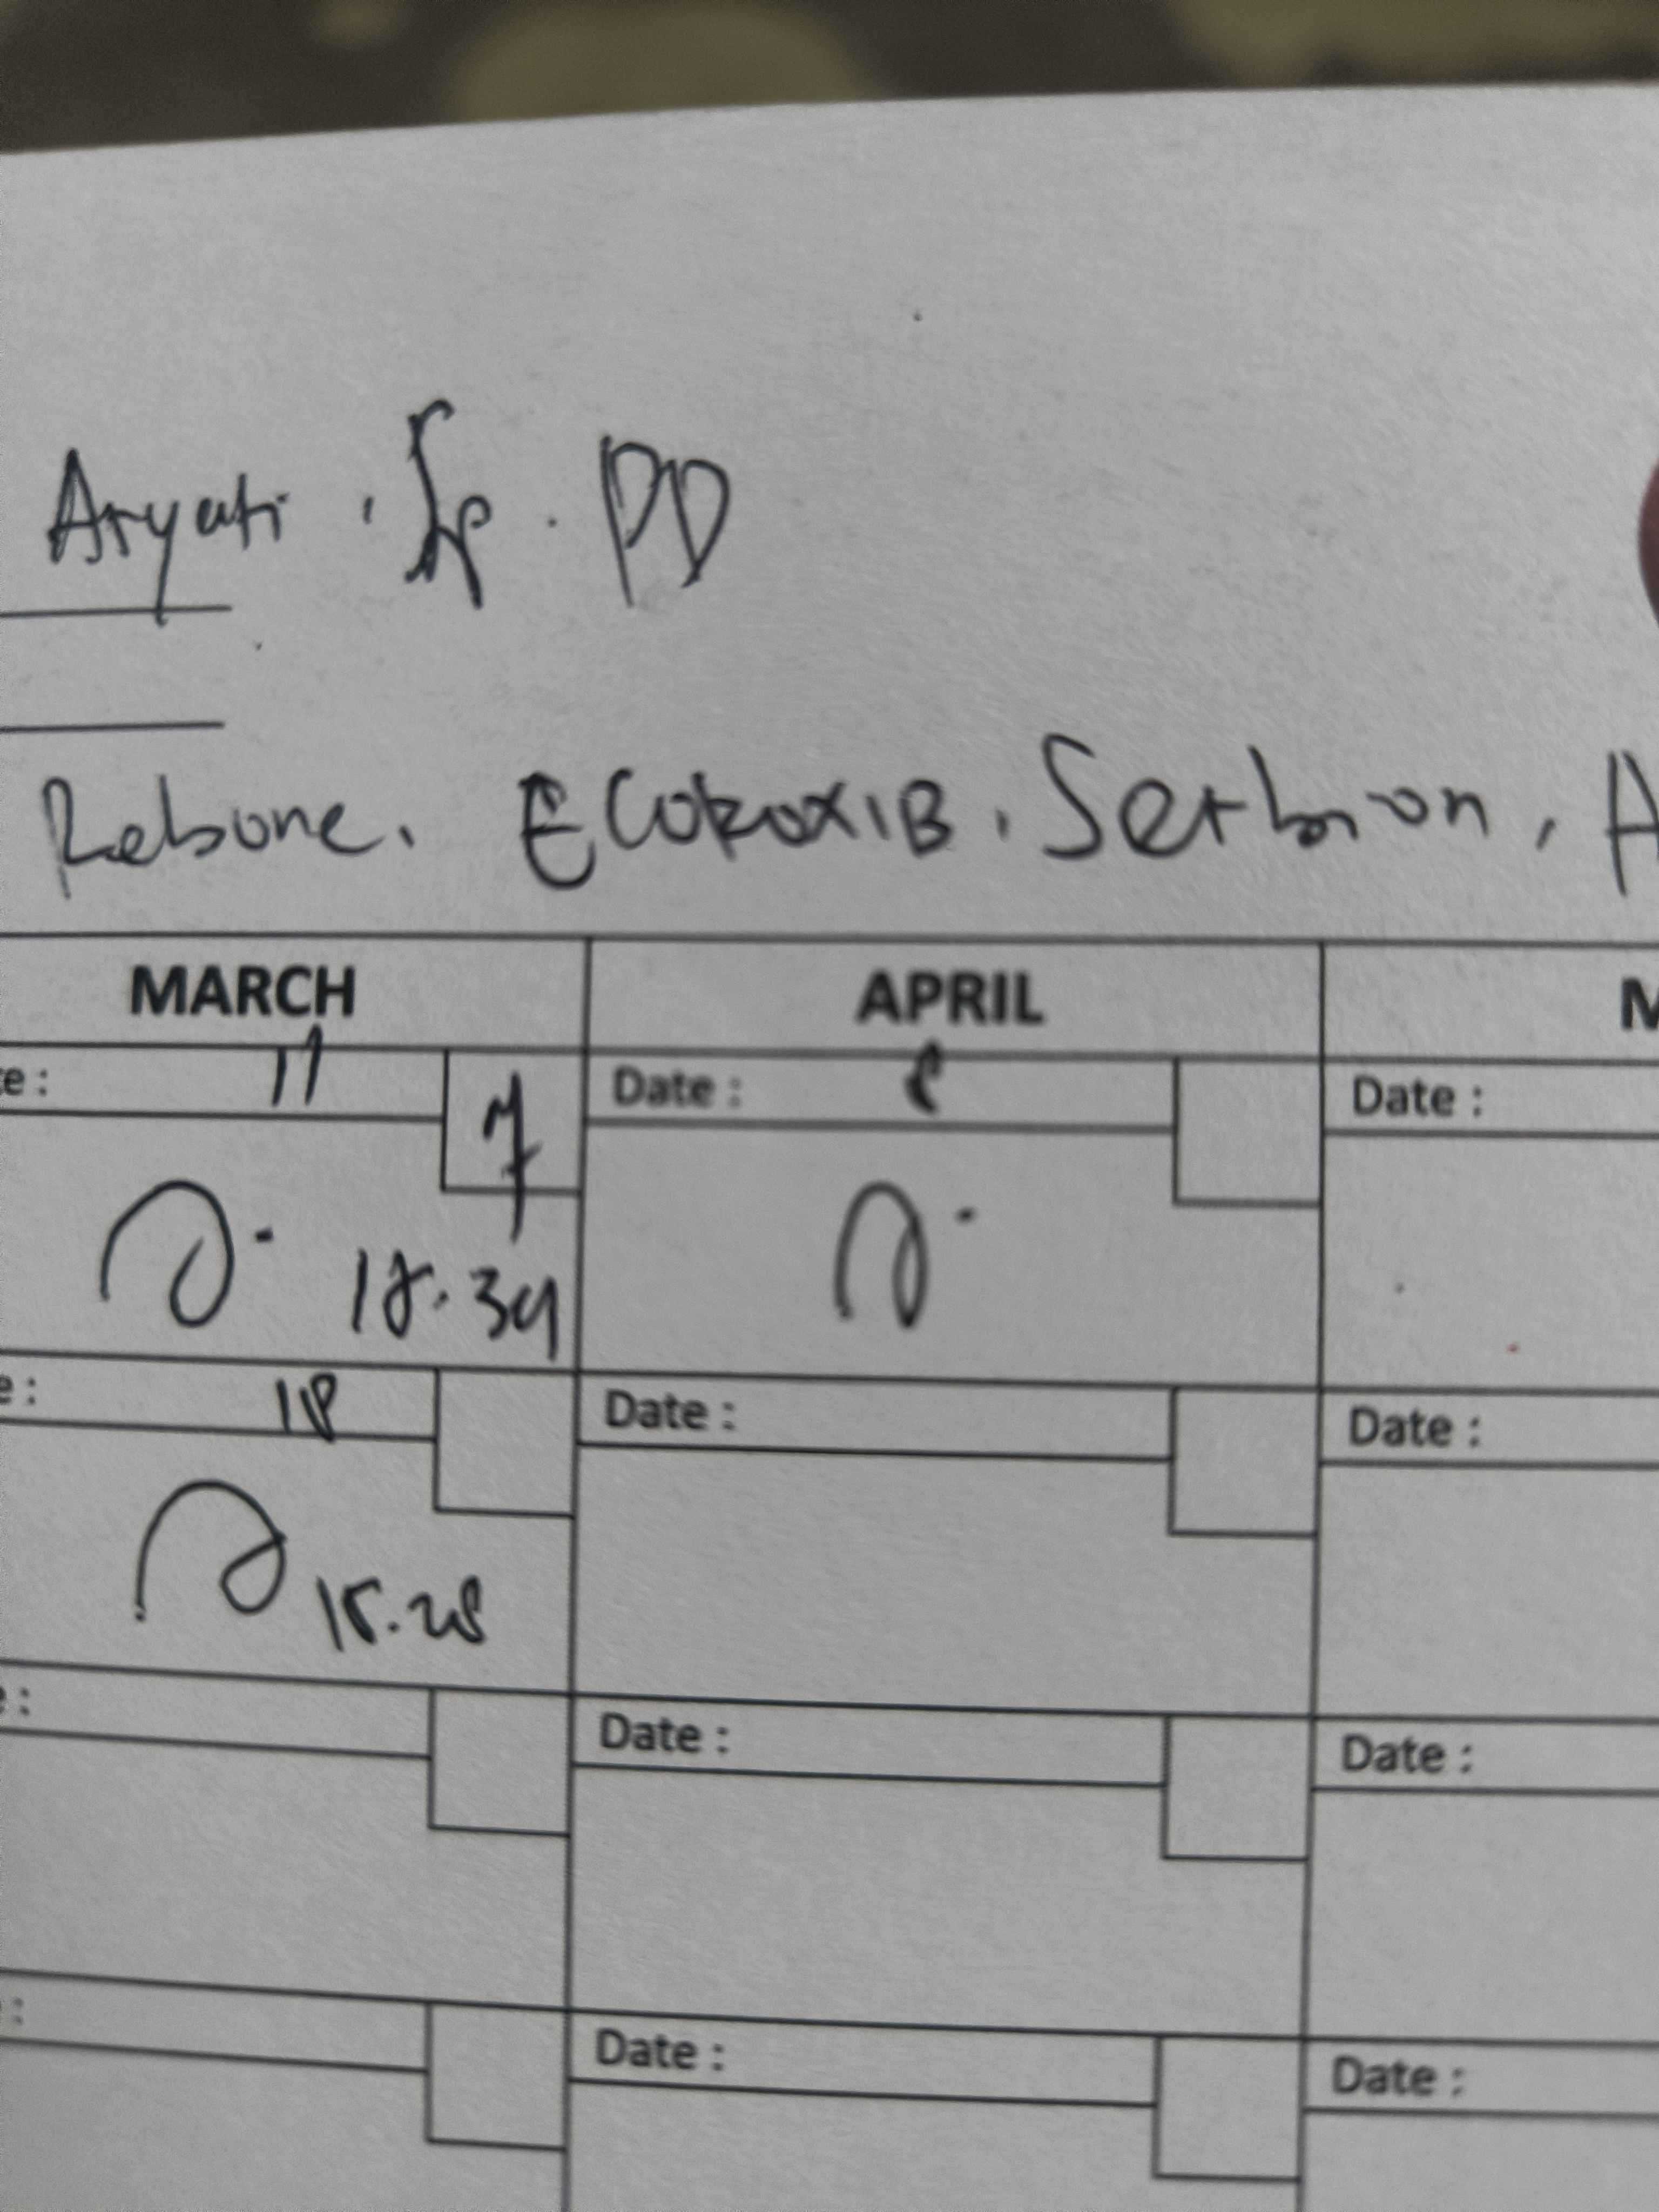 Aryati, Sp. PD
Rebone, ECOROXIB, Serbion, A
MARCH APRIL M
te: 11 7 Date: 8 Date:
18.39
e: 18 Date: Date:
15.28
e: Date: Date:
: Date: Date: